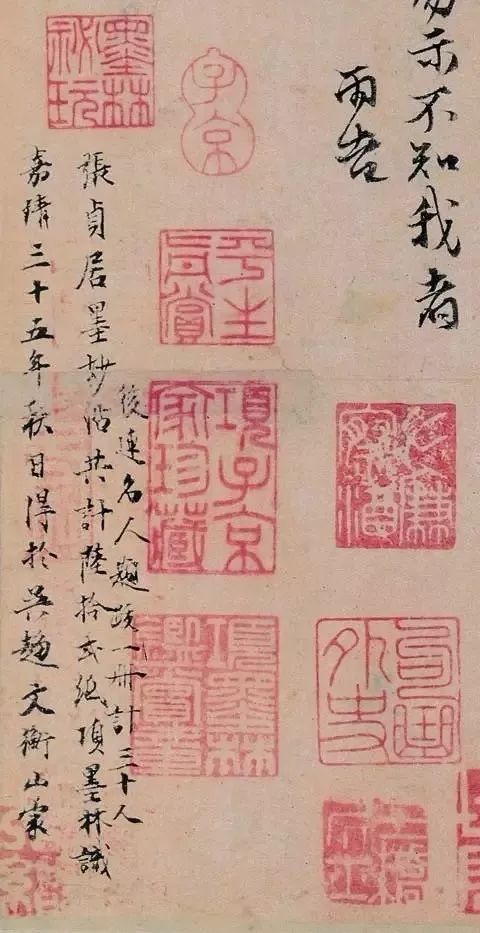 示不知我者
雨告
外史
墨林秘玩
子京
平生真賞
項子京家珍藏
項墨林鑑賞章
後連名人題跋一冊計三十人
張貞居墨妙帖共計陸拾紙項墨林識
嘉靖三十五年秋日得於吳趨文衡山家